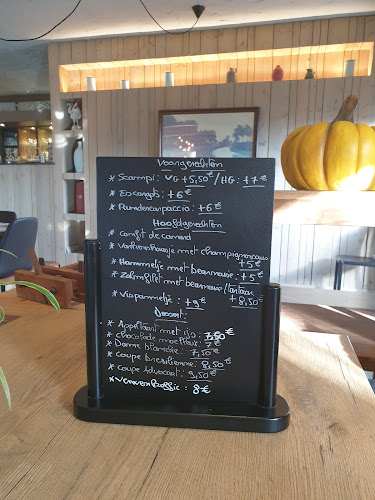 Voorgerechten
* Scampi: VG +5,50€ / HG: +7€
* Escargots: +6€
* Rundercarpaccio: +6€
Hoofdgerechten
* Confit de canard
* Varkenshaasje met champignonsaus
+5€
* Hammetje met bearnaise: +5€
* Zalmfilet met bearnaise/tartaar
+8,50€
* Vispannetje: +9€
Dessert:
* Appeltaart met ijs: 7,50€
* Chocolade moelleux:
* Dame blanche: 7,50€
* Coupe bresilienne: 8,50€
* Coupe Advocaat: 9,50€
* : 8€